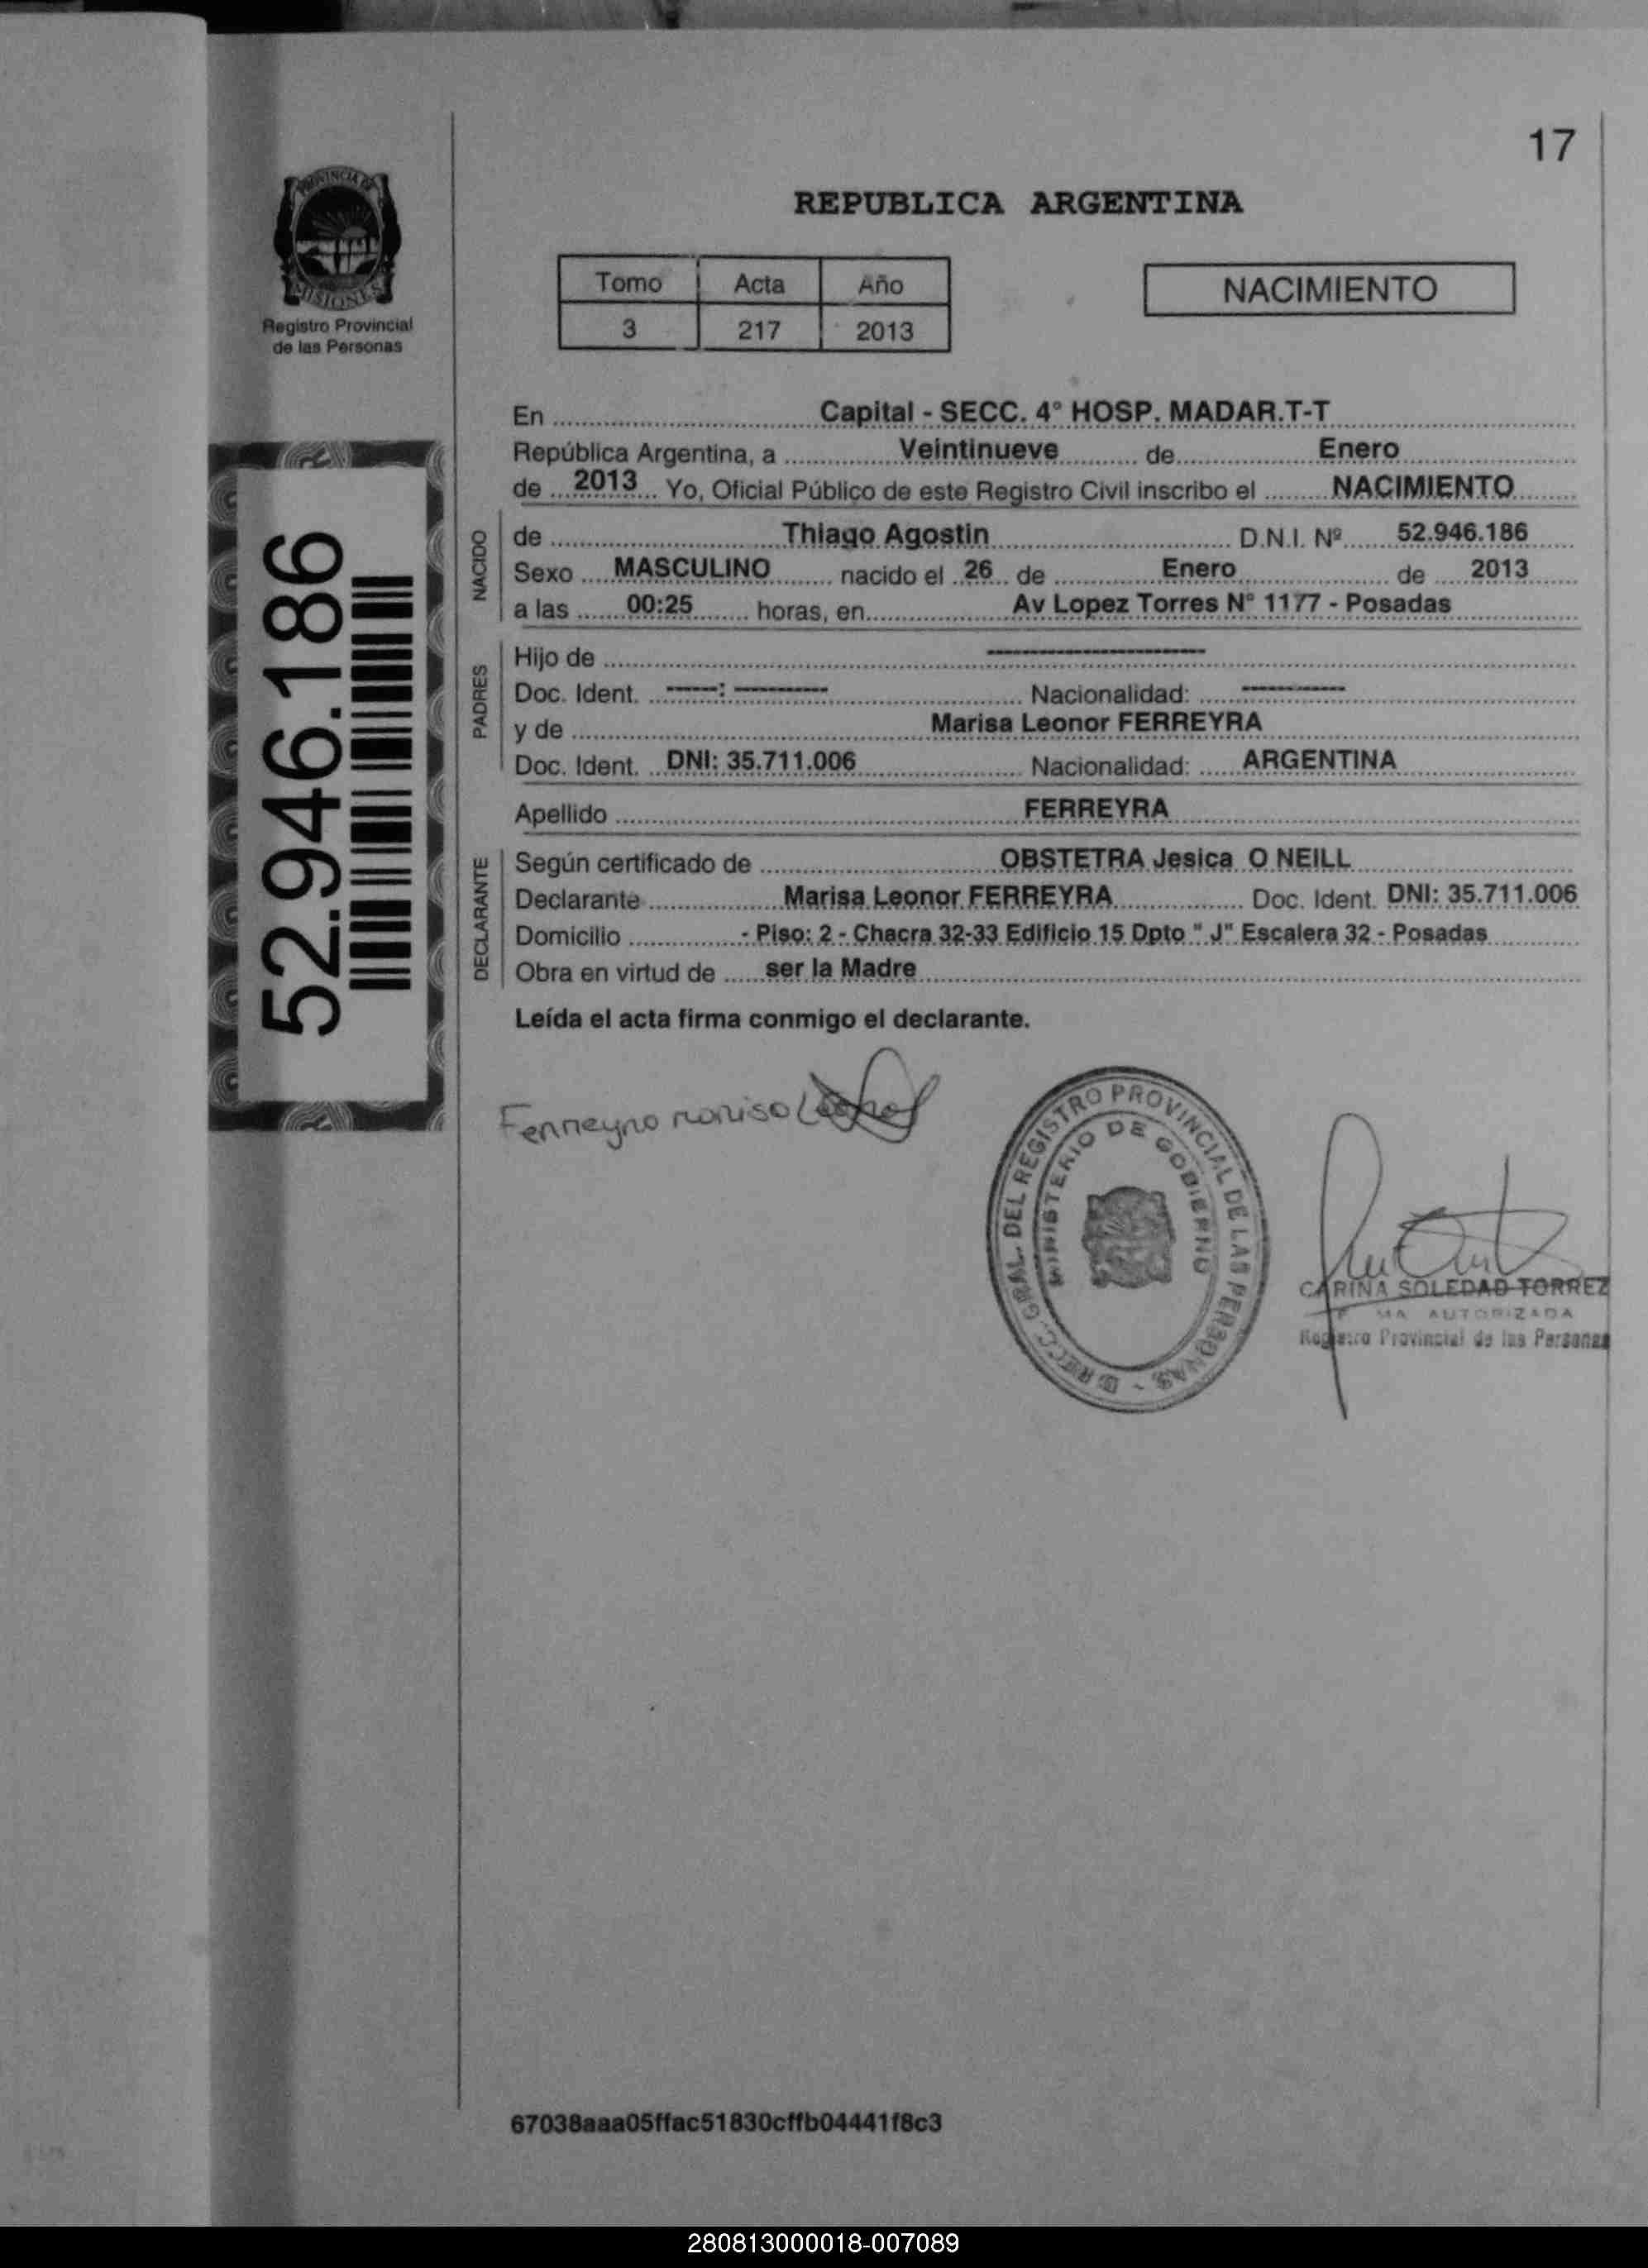 17
PROVINCIA DE
MISIONES
Registro Provincial
de las Personas
REPUBLICA ARGENTINA
Tomo Acta Año
3 217 2013
NACIMIENTO
En Capital - SECC. 4° HOSP. MADAR.T-T
República Argentina, a Veintinueve de Enero
de 2013 Yo, Oficial Público de este Registro Civil inscribo el NACIMIENTO
NACIDO
de Thiago Agostin D.N.I. Nº 52.946.186
Sexo MASCULINO nacido el 26 de Enero de 2013
a las 00:25 horas, en Av Lopez Torres N° 1177 - Posadas
PADRES
Hijo de --------------------
Doc. Ident. -----: --------- Nacionalidad: ----------
y de Marisa Leonor FERREYRA
Doc. Ident. DNI: 35.711.006 Nacionalidad: ARGENTINA
Apellido FERREYRA
DECLARANTE
Según certificado de OBSTETRA Jesica O NEILL
Declarante Marisa Leonor FERREYRA Doc. Ident. DNI: 35.711.006
Domicilio - Piso: 2 - Chacra 32-33 Edificio 15 Dpto " J" Escalera 32 - Posadas
Obra en virtud de ser la Madre
Leída el acta firma conmigo el declarante.
52.946.186
Ferreyra marisa Leonor
GRAL. DEL REGISTRO PROVINCIAL DE LAS PERSONAS -
MINISTERIO DE GOBIERNO
CARINA SOLEDAD TORREZ
AUTORIZADA
Registro Provincial de las Personas
67038aaa05ffac51830cffb04441f8c3
280813000018-007089